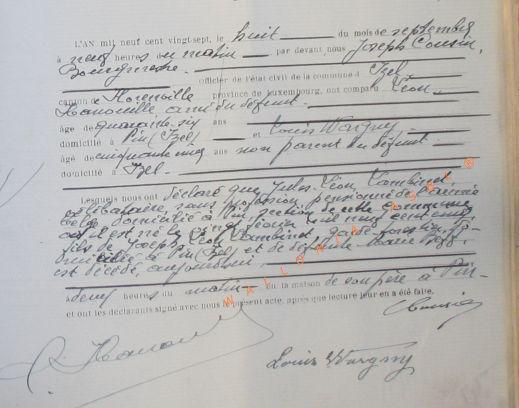 L'AN mil neuf cent vingt-sept, le huit du mois de septembre
à neuf heures du matin par devant nous Joseph Cousin,
Bourgmestre.
officier de l'état civil de la commune d'Izel
canton de Florenville province de Luxembourg, ont comparu Léon
Hanouille, ami du défunt.
âgé de quarante-six ans
domicilié à Pin (Izel) et Louis Wargny
âgé de cinquante cinq ans non parent du défunt.
domicilié à Izel.
Lesquels nous ont déclaré que Jules-Léon Lambinet,
célibataire, sans profession, pensionné de l'armée
belge, domicilié à Pin, section de cette commune
où il est né le
fils de Joseph Léon Lambinet, garde-forestier,
domicilié à Pin (Izel) et de défunte Marie
est décédé, aujourd'hui
à deux heures du matin en la maison de son père à Pin
et ont les déclarants signé avec nous le présent acte, après que lecture leur en a été faite.
Cousin
L. Hanouille
Louis Wargny
WALLONIA